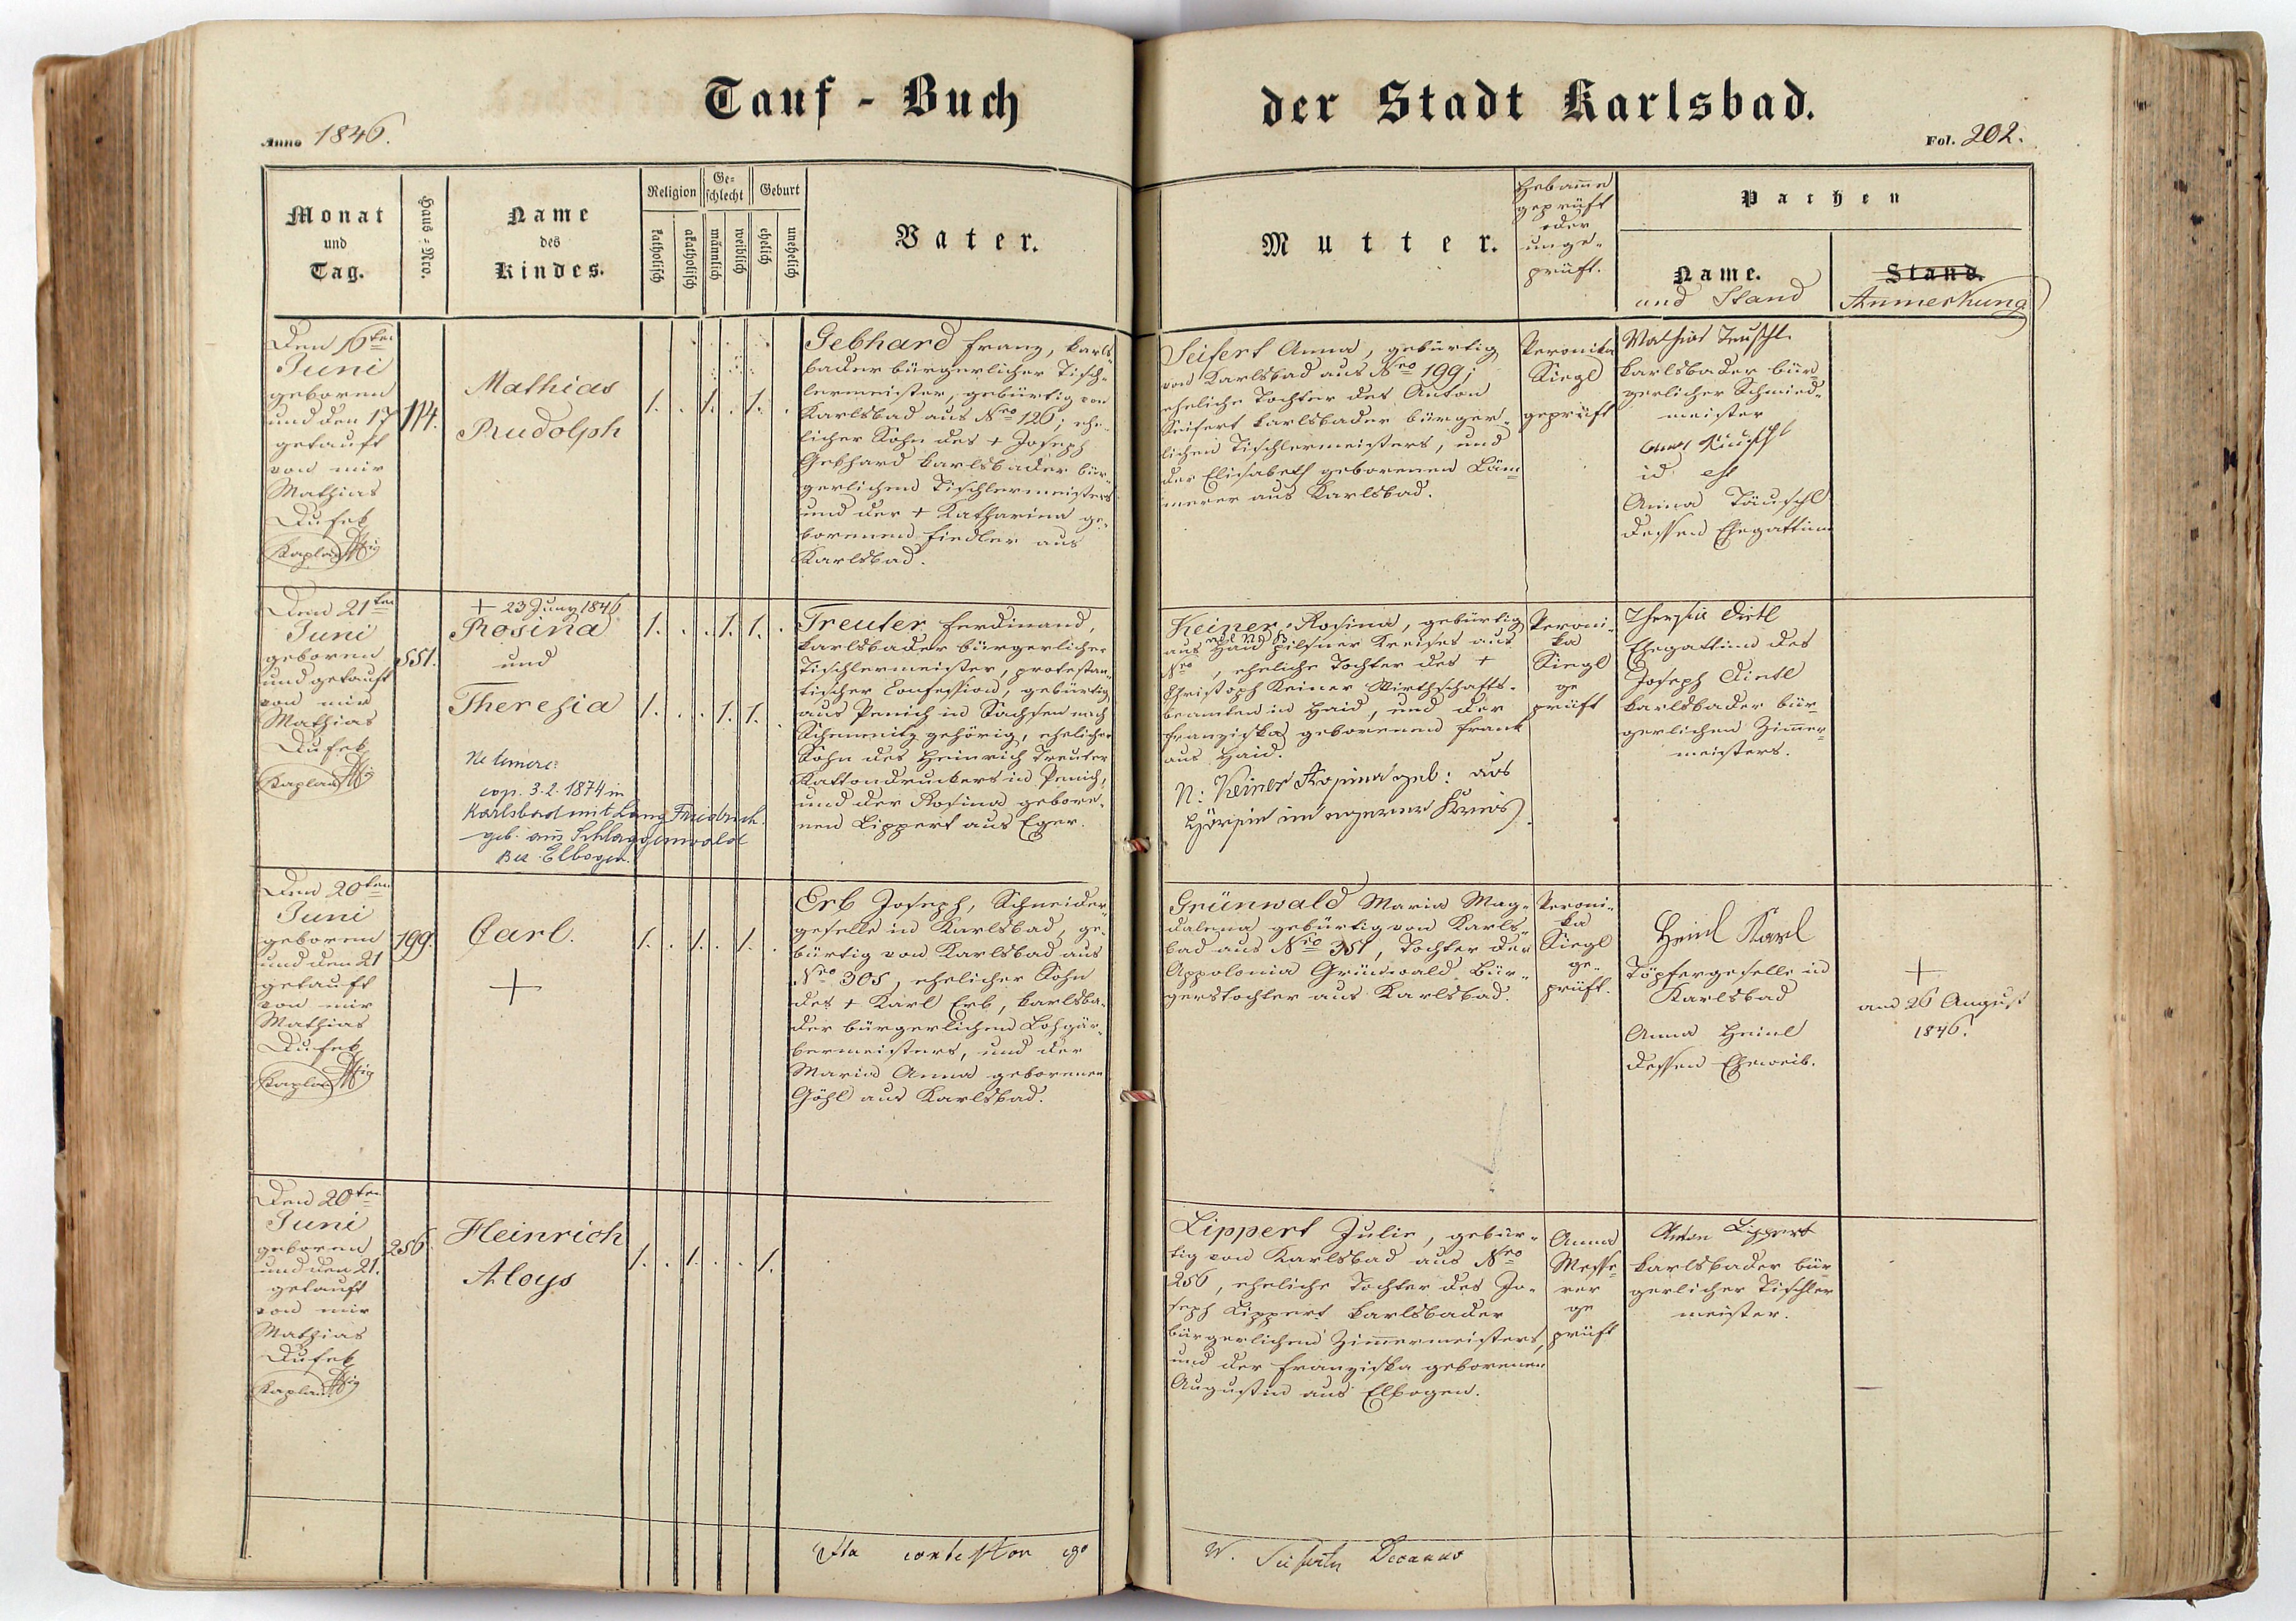 Tauf - Buch
der Stadt Karlsbad.
Anno 1846.
Fol. 202.
Monat
und
Tag.
Haus-Nro.
Name
des
Kindes.
Religion
katholisch
akatholisch
Ge-
schlecht
männlich
weiblich
Geburt
ehelich
unehelich
Vater.
Mutter.
Hebamme
geprüft
oder
unge-
prüft.
Pathen
Name.
und Stand
Stand.
Anmerkung
Den 16ten
Juni
geboren
und den 17
getauft
von mir
Mathias
Dufek
Kaplan
114.
Mathias
Rudolph
1. . 1. . 1. .
Gebhard Franz, Karls-
bader bürgerlicher Tisch-
lermeister, gebürtig von
Karlsbad aus Nro 126; ehe-
licher Sohn des + Joseph
Gebhard Karlsbader bür-
gerlichen Tischlermeisters
und der + Katharina ge-
borenen Fiedler aus
Karlsbad.
Seifert Anna, gebürtig
von Karlsbad aus Nro 199;
eheliche Tochter des Anton
Seifert Karlsbader bürger-
lichen Tischlermeisters, und
der Elisabeth geborenen Läm-
merer aus Karlsbad.
Veronika
Siegl
geprüft
Mathias Teuschl
Karlsbader bür-
gerlicher Schmied-
meister
id est
Anna Täuschl
dessen Ehegattin
Den 21ten
Juni
geboren
und getauft
von mir
Mathias
Dufek
Kaplan
551.
+ 23 Juny 1846
Rosina
und
Theresia
1. . . 1. 1. .
1. . . 1. 1. .
Ne temere:
cop. 3.2.1874 in
Karlsbad mit Lang Friedrich
geb. aus Schlaggenwald
Bez. Elbogen.
Treuter Ferdinand,
Karlsbader bürgerlicher
Tischlermeister, protestan-
tischer Confession, gebürtig
aus Penich in Sachsen nach
Schemnitz gehörig, ehelicher
Sohn des Heinrich Treuter
Kattondruckers in Penich,
und der Rosina gebore-
nen Lippert aus Eger.
Keiner Rosina, gebürtig
aus Haid Pilsner Kreises aus
Nro , eheliche Tochter des +
Christoph Keiner Wirthschafts-
beamten in Haid, und der
Franziska geborenen Frank
aus Haid.
N: Keiner Rosina geb: aus
Veroni-
ka
Siegl
ge
prüft
Theresia Dietl
Ehegattin des
Joseph Dietl
Karlsbader bür-
gerlichen Zimmer-
meisters.
Den 20ten
Juni
geboren
und den 21
getauft
von mir
Mathias
Dufek
Kaplan
199.
Carl.
+
1. . 1. . 1. .
Erb Joseph, Schneider-
geselle in Karlsbad, ge-
bürtig von Karlsbad aus
Nro 305, ehelicher Sohn
des + Karl Erb, Karlsba-
der bürgerlichen Lohgär-
bermeisters, und der
Maria Anna geborenen
Göhl aus Karlsbad.
Grünwald Maria Mag-
dalena gebürtig von Karls-
bad aus Nro 351, Tochter der
Appolonia Grünwald Bür-
gerstochter aus Karlsbad.
Veroni-
ka
Siegl
ge-
prüft.
Heinl Karl
Töpfergeselle in
Karlsbad
Anna Heinl
dessen Eheweib.
+
am 26 August
1846.
Den 20ten
Juni
geboren
und den 21.
getauft
von mir
Mathias
Dufek
Kaplan
256.
Heinrich
Aloys
1. . 1. . . 1.
Lippert Julie, gebür-
tig von Karlsbad aus Nro
256, eheliche Tochter des Jo-
seph Lippert Karlsbader
bürgerlichen Zimmermeisters,
und der Franziska geborenen
Augustin aus Elbogen.
Anna
Messe-
rer
ge
prüft
Anton Lippert
Karlsbader bür-
gerlicher Tischler
meister.
Ita contestor ego
W. Seiferth Decanus